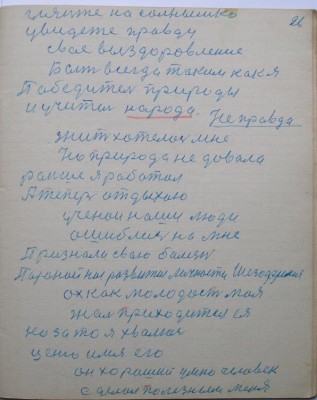 глянте на солнышко
26
увидете правду
свае выздоровление
Бат всегда таким как я
Победител природы
и учител народа.
Не правда
жит хотелос мне
Но природа не довала
ранше я работал
А тепер отдыхаю
ученои наши люди
ошиблис на мне
Признали сваю балезн
Параной ное развитие личности Шезоддрения
ох как молодост мая
жал приходится ея
но зато я хвалюс
цень имя его
он хороший умно человек
сделал полезным меня